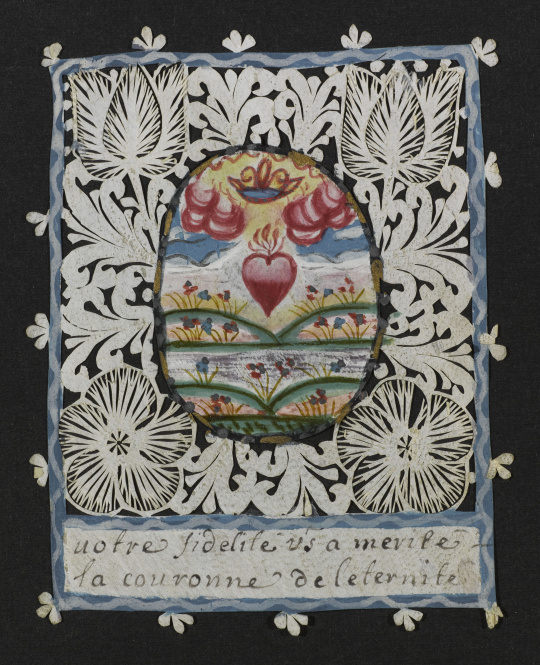 uotre fidelite vs a merite
la couronne de leternite